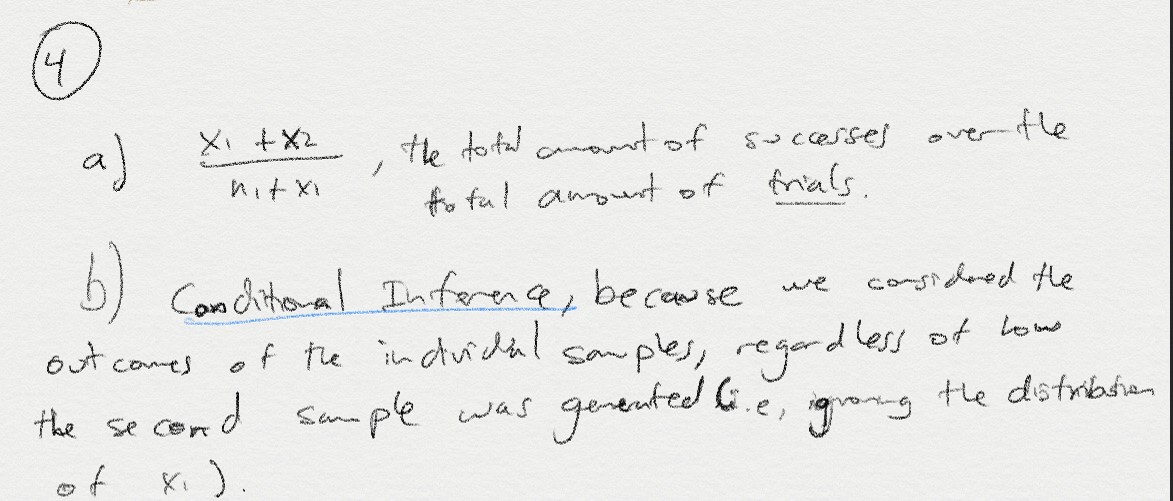 4
a) x1 + x2 / n1 + x1 , the total amount of successes over the
total amount of trials.
b) Conditional Inference, because we considered the
outcomes of the individual samples, regardless of how
the second sample was generated (i.e, ignoring the distribution
of x1).